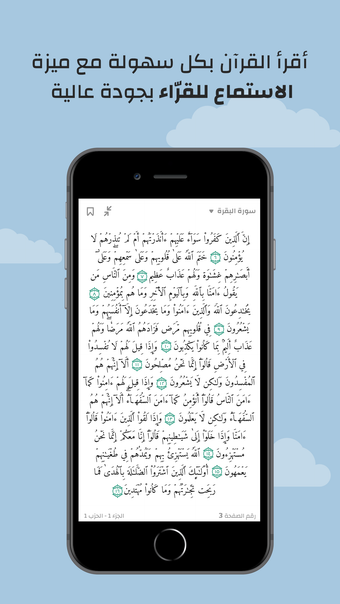 أقرأ القرآن بكل سهولة مع ميزة
الاستماع للقرّاء بجودة عالية
سورة البقرة
إِنَّ ٱلَّذِينَ كَفَرُوا۟ سَوَآءٌ عَلَيْهِمْ ءَأَنذَرْتَهُمْ أَمْ لَمْ تُنذِرْهُمْ لَا
يُؤْمِنُونَ ٦ خَتَمَ ٱللَّهُ عَلَىٰ قُلُوبِهِمْ وَعَلَىٰ سَمْعِهِمْ ۖ وَعَلَىٰٓ
أَبْصَـٰرِهِمْ غِشَـٰوَةٌ ۖ وَلَهُمْ عَذَابٌ عَظِيمٌ ٧ وَمِنَ ٱلنَّاسِ مَن
يَقُولُ ءَامَنَّا بِٱللَّهِ وَبِٱلْيَوْمِ ٱلْـَٔاخِرِ وَمَا هُم بِمُؤْمِنِينَ ٨
يُخَـٰدِعُونَ ٱللَّهَ وَٱلَّذِينَ ءَامَنُوا۟ وَمَا يَخْدَعُونَ إِلَّآ أَنفُسَهُمْ وَمَا
يَشْعُرُونَ ٩ فِى قُلُوبِهِم مَّرَضٌ فَزَادَهُمُ ٱللَّهُ مَرَضًا ۖ وَلَهُمْ
عَذَابٌ أَلِيمٌۢ بِمَا كَانُوا۟ يَكْذِبُونَ ١٠ وَإِذَا قِيلَ لَهُمْ لَا تُفْسِدُوا۟
فِى ٱلْأَرْضِ قَالُوٓا۟ إِنَّمَا نَحْنُ مُصْلِحُونَ ١١ أَلَآ إِنَّهُمْ هُمُ
ٱلْمُفْسِدُونَ وَلَـٰكِن لَّا يَشْعُرُونَ ١٢ وَإِذَا قِيلَ لَهُمْ ءَامِنُوا۟ كَمَآ
ءَامَنَ ٱلنَّاسُ قَالُوٓا۟ أَنُؤْمِنُ كَمَآ ءَامَنَ ٱلسُّفَهَآءُ ۗ أَلَآ إِنَّهُمْ هُمُ
ٱلسُّفَهَآءُ وَلَـٰكِن لَّا يَعْلَمُونَ ١٣ وَإِذَا لَقُوا۟ ٱلَّذِينَ ءَامَنُوا۟ قَالُوٓا۟
ءَامَنَّا وَإِذَا خَلَوْا۟ إِلَىٰ شَيَـٰطِينِهِمْ قَالُوٓا۟ إِنَّا مَعَكُمْ إِنَّمَا نَحْنُ
مُسْتَهْزِءُونَ ١٤ ٱللَّهُ يَسْتَهْزِئُ بِهِمْ وَيَمُدُّهُمْ فِى طُغْيَـٰنِهِمْ
يَعْمَهُونَ ١٥ أُو۟لَـٰٓئِكَ ٱلَّذِينَ ٱشْتَرَوُا۟ ٱلضَّلَـٰلَةَ بِٱلْهُدَىٰ فَمَا
رَبِحَت تِّجَـٰرَتُهُمْ وَمَا كَانُوا۟ مُهْتَدِينَ ١٦
رقم الصفحة 3
الجزء 1 - الحزب 1